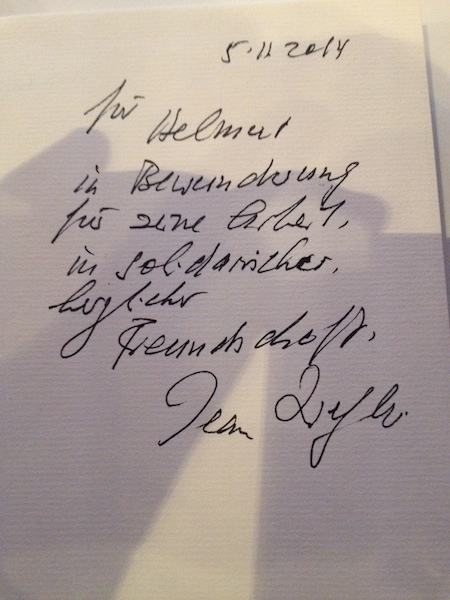 5.11.2014
für Helmut
in Bewunderung
für seine Arbeit,
in solidarischer,
herzlicher
Freundschaft.
Jean Ziegler